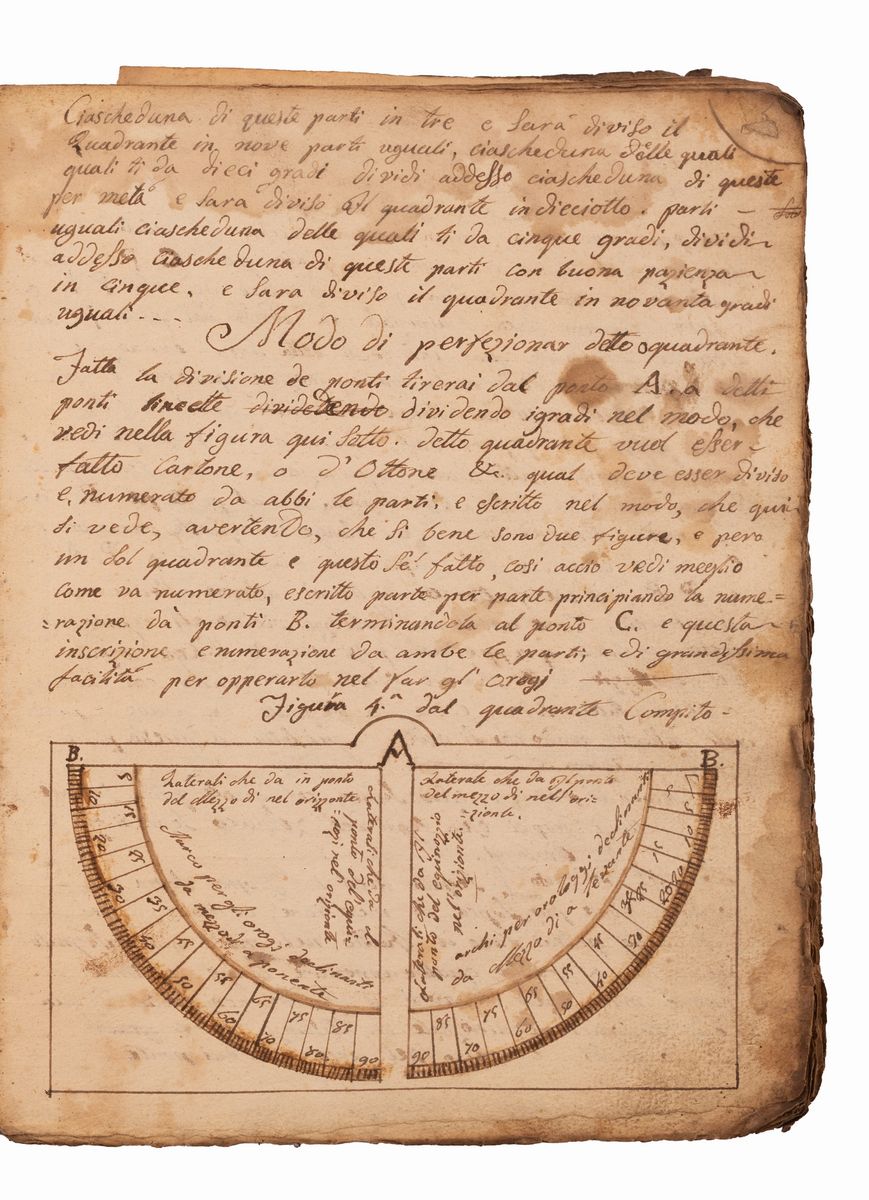 Ciascheduna di queste parti in tre e sarà diviso il
Quadrante in nove parti uguali, ciascheduna delle quali
quali ti da dieci gradi dividi addesso ciascheduna di queste
per metà e sarà diviso il quadrante in dieciotto. parti
uguali ciascheduna delle quali ti da cinque gradi, dividi
addesso ciascheduna di queste parti con buona pazienza
in cinque, e sara diviso il quadrante in novanta gradi
uguali - - -
Modo di perfezionar detto quadrante.
Fatta la divisione de ponti tirerai dal ponto A. a detti
ponti lineette dividetendo dividendo i gradi nel modo, che
vedi nella figura qui sotto. detto quadrante vuol esser
fatto Cartone, o d'Ottone &. qual deve esser diviso
e, numerato da abbi le parti, e escritto nel modo, che qui
si vede, avertendo, che si bene sono due figure, e pero
un sol quadrante e questo s'e' fatto, cosi accio vedi meglio
come va numerato, escritto parte per parte principiando la nume=
=razione dà ponti B. terminandola al ponto C. e questa
inscrizione e numerazione da ambe le parti, e di grandissima
facilità per opperarlo nel far gl' orogi
Figura 4.a dal quadrante Compito -
B. A B.
Laterali che da in ponto
del Mezzo di nel orizonte
Laterali che da il
ponto del equin=
=ozi nel orizonte
Marco per gli orogi declinanti
da mezzodi a ponente
5 10 15 20 25 30 35 40 45 50 55 60 65 70 75 80 85 90
Laterale che da il ponto
del mezzo di nell'ori=
=zonte.
Laterali che da il
ponto del equinozio
nell'orizonte.
archi per orologgi declinanti
da Mezzo di a levante
5 10 15 20 25 30 35 40 45 50 55 60 65 70 75 80 85 90